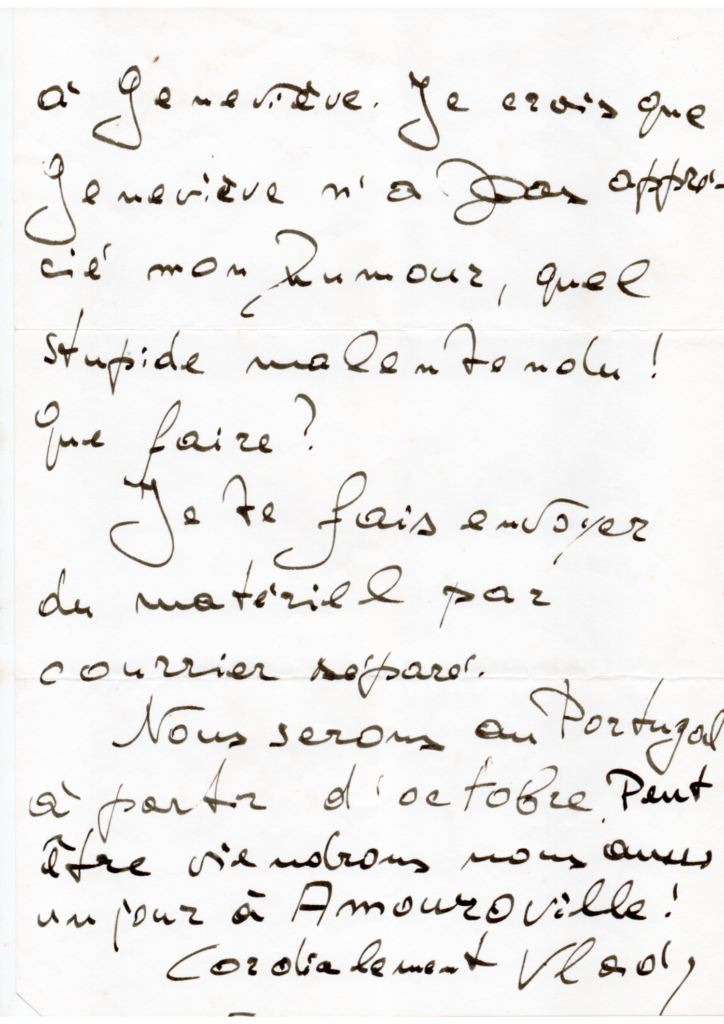 à Geneviève. Je crois que
Geneviève n'a pas appré-
cié mon humour, quel
stupide malentendu !
Que faire ?
Je te fais envoyer
du matériel par
courrier séparé.
Nous serons au Portugal
à partir d'octobre. Peut
être viendrons nous aussi
un jour à Amouroville !
Cordialement Vlady